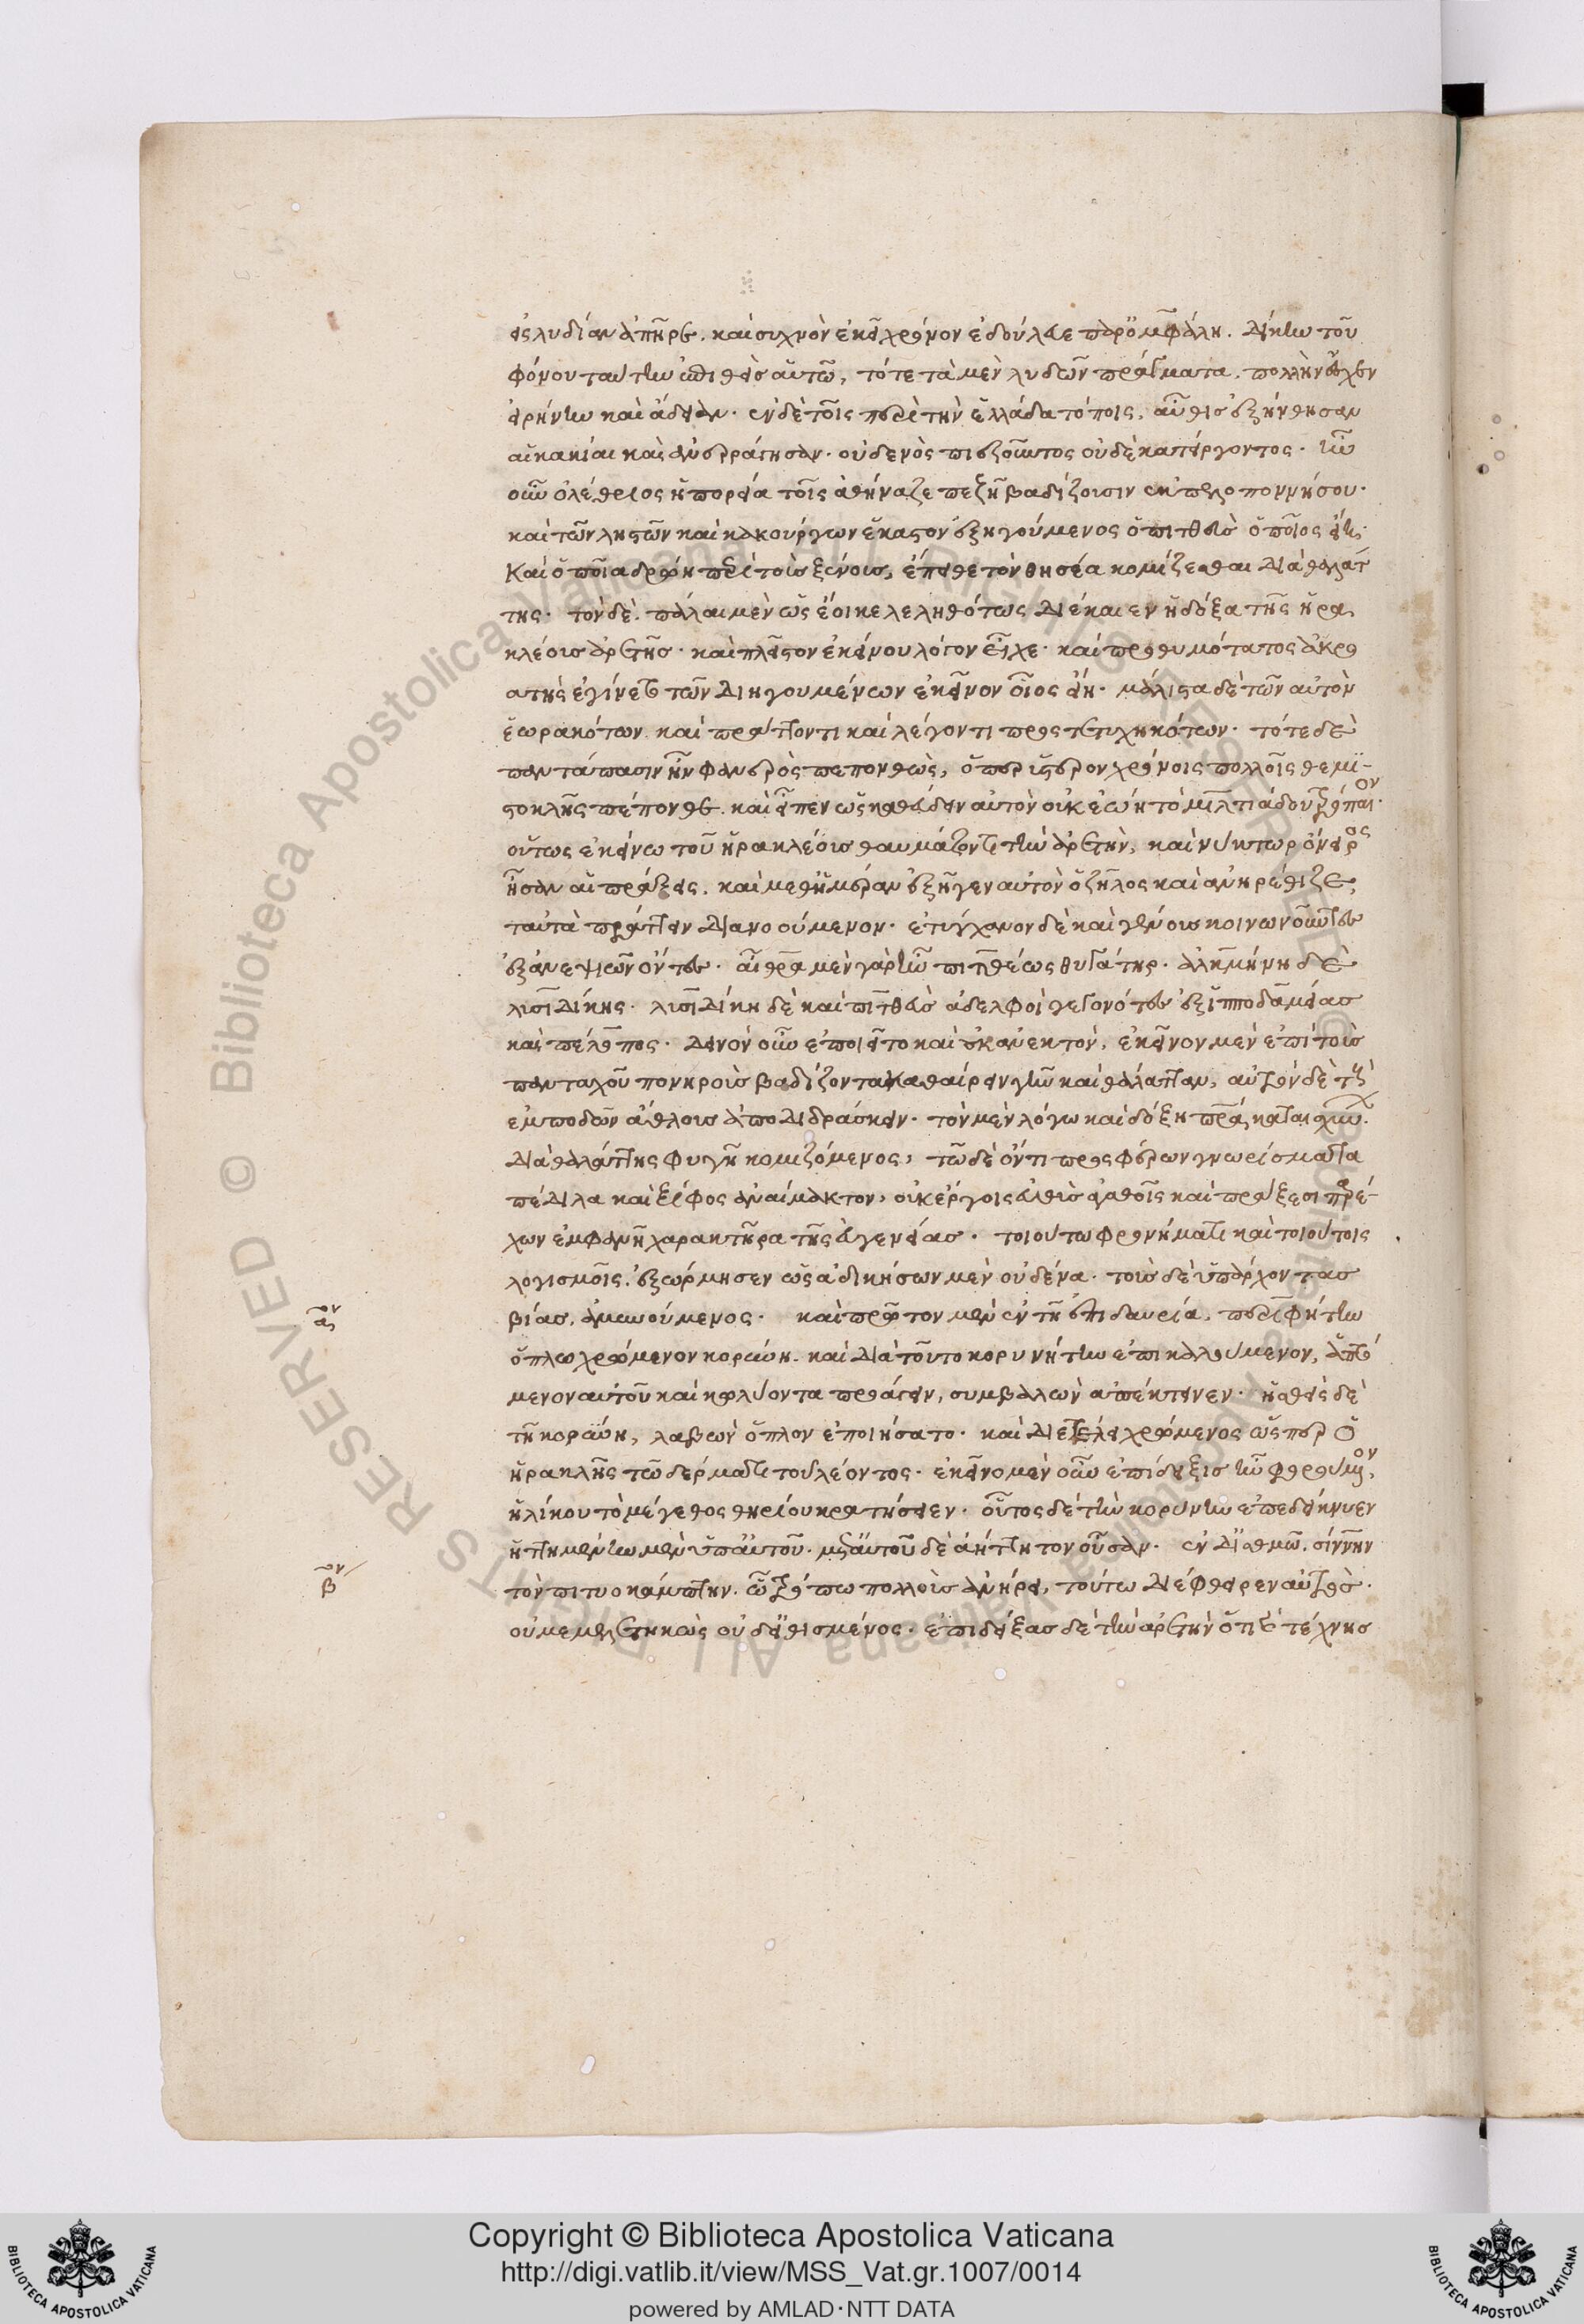 εἰς λυδίαν ἀπῆρε. καὶ συχνὸν ἐκεῖ χρόνον ἐδούλευε παρ᾽ ὀμφάλη. δίκην τοῦ
φόνου ταύτην ἐπιθεὶς αὑτῶ, τότε τὰ μὲν λυδῶν πράγματα, πολλὴν ἔσχεν
εἰρήνην καὶ ἄδειαν. ἐν δὲ τοῖς περὶ τὴν ἑλλάδα τόποις, αὖθις ἐξήνθησαν
αἱ κακίαι καὶ ἀνερράγησαν. οὐδενὸς πιεζοῦντος οὐδὲ κατείργοντος. ἦν
οὖν ὀλέθριος ἡ πορεία τοῖς ἀθήναζε πεζῆ βαδίζουσιν ἐκ πελοποννήσου.
καὶ τῶν ληστῶν καὶ κακούργων ἕκαστον ἐξηγούμενος ὁ πιτθεὺς ὁποῖος εἴη.
Καὶ ὁποῖα δρώη περὶ τοὺς ξένους, ἔπειθε τὸν θησέα κομίζεσθαι διὰ θαλάτ
της. τὸν δὲ. πάλαι μὲν ὡς ἔοικε λεληθότως διέκαιεν ἡ δόξα τῆς ἡρα
κλέους ἀρετῆς. καὶ πλεῖστον ἐκείνου λόγον εἶχε. καὶ προθυμότατος ἀκρο
ατὴς ἐγίνετο τῶν διηγουμένων ἐκεῖνον οἷος εἴη. μάλιστα δὲ τῶν αὐτὸν
ἑωρακότων καὶ πράττοντι καὶ λέγοντι προστετυχηκότων. τότε δὲ
παντάπασιν ἦν φανερὸς πεπονθὼς, ὅπερ ὕστερον χρόνοις πολλοῖς θεμι
στοκλῆς πέπονθε. καὶ εἶπεν ὡς καθεύδειν αὐτὸν οὐκ ἐώη τὸ μιλτιάδου τρόπαιον.
οὕτως ἐκείνω τοῦ ἡρακλέους θαυμάζοντι τὴν ἀρετὴν, καὶ νύκτωρ ὄνειρος
ἦσαν αἱ πράξεις. καὶ μεθ᾽ ἡμέραν ἐξῆγεν αὐτὸν ὁ ζῆλος καὶ ἀνηρέθιζε,
ταὐτὰ πράττειν διανοούμενον. ἐτύγχανον δὲ καὶ γένους κοινωνοῦντες
ἐξ ἀνεψιῶν ὄντες. αἴθρα μὲν γὰρ ἦν πιτθέως θυγάτηρ. ἀλκμήνη δὲ
λυσιδίκης. λυσιδίκη δὲ καὶ πιτθεὺς ἀδελφοὶ γεγονότες ἐξ ἱπποδαμείας
καὶ πέλοπος. δεινὸν οὖν ἐποιεῖτο καὶ οὐκ ἀνεκτὸν, ἐκεῖνον μὲν ἐπὶ τοὺς
πανταχοῦ πονηροὺς βαδίζοντα καθαίρειν γῆν καὶ θάλατταν, αὐτὸν δὲ τοὺς
ἐμποδὼν ἄθλους ἀποδιδράσκειν. τὸν μὲν λόγω καὶ δόξη πατέρα καταισχύνων.
διὰ θαλάττης φυγῆ κομιζόμενος, τῶ δὲ ὄντι προσφέρων γνωρίσματα
πέδιλα καὶ ξίφος ἀναίμακτον, οὐκ ἔργοις εὐθὺς ἀγαθοῖς καὶ πράξεσι παρέ
χων ἐμφανῆ χαρακτῆρα τῆς εὐγενείας. τοιούτω φρονήματι καὶ τοιούτοις
λογισμοῖς, ἐξώρμησεν ὡς ἀδικήσων μὲν οὐδένα. τοὺς δὲ ὑπάρχοντας
βίας, ἀμυνούμενος. καὶ πρῶτον μὲν ἐν τῆ ἐπιδαυρία, περιφήτην
ὅπλω χρώμενον κορύνη. καὶ διὰ τοῦτο κορυνήτην ἐπικαλούμενον, ἁπτό
μενον αὐτοῦ καὶ κωλύοντα προάγειν, συμβαλὼν ἀπέκτεινεν. ἡσθεὶς δὲ
τῆ κορύνη, λαβὼν ὅπλον ἐποιήσατο. καὶ διετέλει χρώμενος ὥσπερ ὁ
ἡρακλῆς τῶ δέρματι τοῦ λέοντος. ἐκείνω μὲν οὖν ἐπίδειξις ἦν φορούμενον,
ἡλίκου τὸ μέγεθος θηρίου κρατήσειεν. οὗτος δὲ τὴν κορύνην ἐπεδείκνυεν
ἡττημένην μὲν ὑπ᾽ αὐτοῦ. μετ᾽ αὐτοῦ δὲ ἀήττητον οὖσαν. ἐν δ᾽ ἰσθμῶ, σίννην
τὸν πιτυοκάμπτην. ὧ τρόπω πολλοὺς ἀνήρει, τούτω διέφθειρεν αὐτὸς.
οὐ μεμελετηκὼς οὐδ᾽ εἰθισμένος. ἐπιδείξας δὲ τὴν ἀρετὴν ὅτι καὶ τέχνης
αον
βον